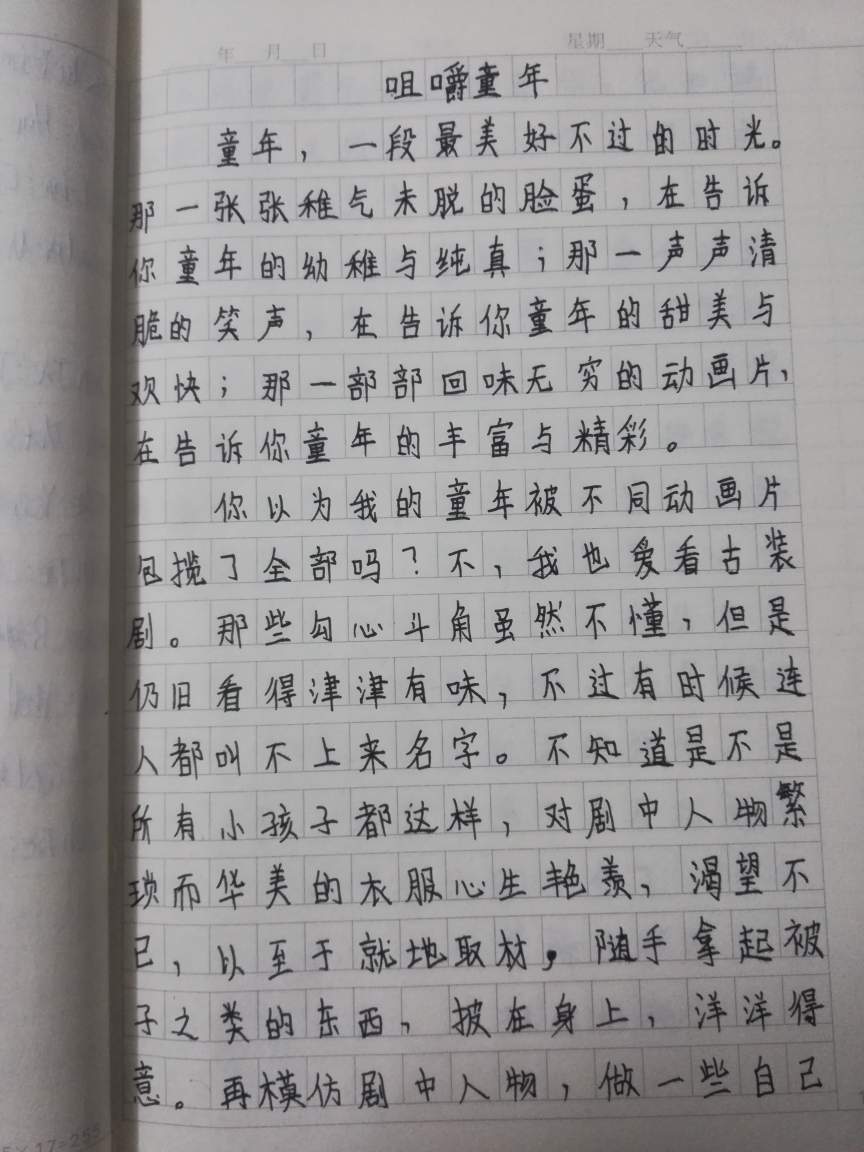 年 月 日 星期 天气
咀嚼童年
童年，一段最美好不过的时光。
那一张张稚气未脱的脸蛋，在告诉
你童年的幼稚与纯真；那一声声清
脆的笑声，在告诉你童年的甜美与
欢快；那一部部回味无穷的动画片，
在告诉你童年的丰富与精彩。
你以为我的童年被不同动画片
包揽了全部吗？不，我也爱看古装
剧。那些勾心斗角虽然不懂，但是
仍旧看得津津有味，不过有时候连
人都叫不上来名字。不知道是不是
所有小孩子都这样，对剧中人物繁
琐而华美的衣服心生艳羡，渴望不
已，以至于就地取材，随手拿起被
子之类的东西，披在身上，洋洋得
意。再模仿剧中人物，做一些自己
5×17=255